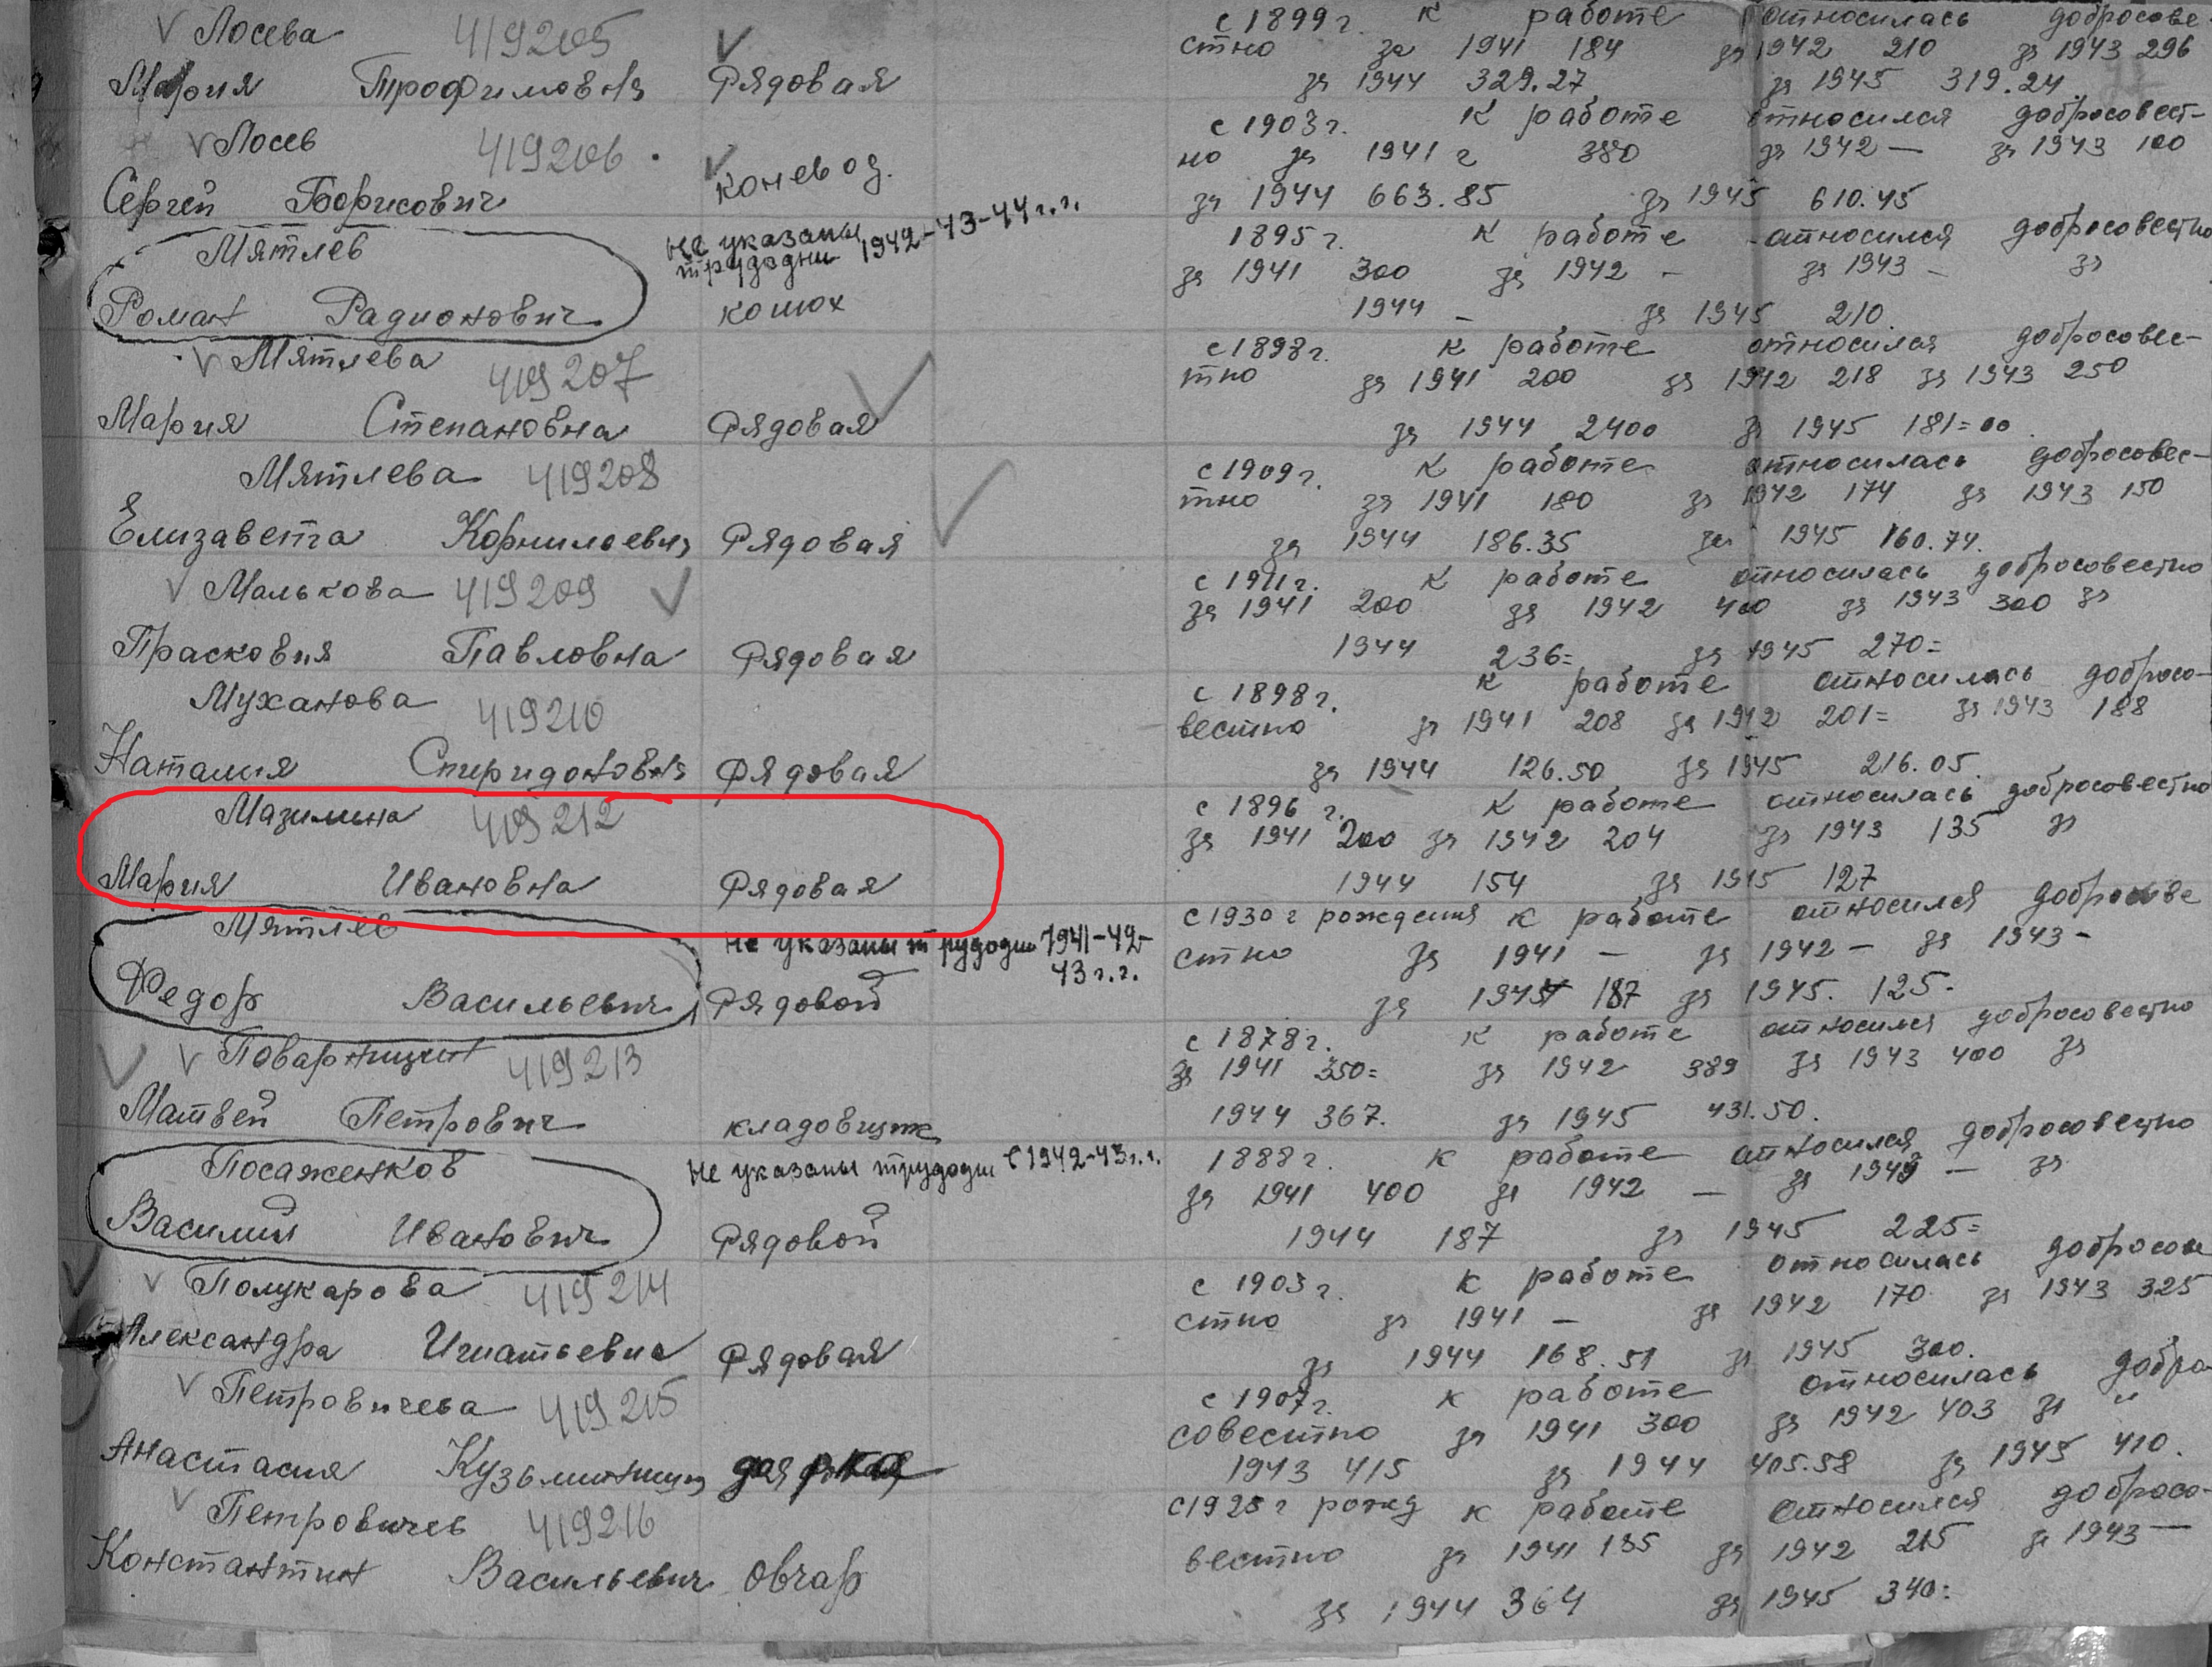 Лосева 419205 с 1899 г. к работе относилась добросове-
стно за 1941 184 за 1942 210 за 1943 296
Мария Трофимовна Рядовая за 1944 329.27 за 1945 319.24
Лосев 419206 с 1903 г. к работе относился добросовест-
но за 1941 г 380 за 1942 — за 1943 100
Сергей Борисович коневод. за 1944 663.85 за 1945 610.45
Мятлев не указаны трудодни 1942-43-44 г.г. 1895 г. к работе относился добросовестно
за 1941 300 за 1942 - за 1943 - за
Роман Радионович конюх 1944 - за 1945 210
Мятлева 419207 с 1898 г. к работе относился добросовес-
тно за 1941 200 за 1942 218 за 1943 250
Мария Степановна Рядовая за 1944 2400 за 1945 181=00
Мятлева 419208 с 1909 г. к работе относилась добросовес-
тно за 1941 180 за 1942 174 за 1943 150
Елизавета Корниловна Рядовая за 1944 186.35 за 1945 160.74.
Малькова 419209 с 1911 г. к работе относилась добросовестно
за 1941 200 за 1942 400 за 1943 300 за
Прасковия Павловна Рядовая 1944 236= за 1945 270=
Муханова 419210 с 1898 г. к работе относилась добросо-
вестно за 1941 208 за 1942 201= за 1943 188
Наталия Спиридоновна Рядовая за 1944 126.50 за 1945 216.05.
Мазилина 419212 с 1896 г. к работе относилась добросовестно
за 1941 200 за 1942 204 за 1943 135 за
Мария Ивановна Рядовая 1944 154 за 1945 127
Мятлев не указаны трудодни 1941-42-43 г.г. с 1930 г рождения к работе относился добросове
стно за 1941 — за 1942 — за 1943 -
Федор Васильевич Рядовой за 1944 187 за 1945. 125-
Поварницин 419213 с 1878 г. к работе относился добросовестно
за 1941 350= за 1942 389 за 1943 400 за
Матвей Петрович кладовщик 1944 367. за 1945 431.50.
Посаженков не указаны трудодни с 1942-43 г.г. 1888 г. к работе относился добросовестно
за 1941 400 за 1942 — за 1943 — за
Василий Иванович Рядовой 1944 187 за 1945 225=
Полукарова 419214 с 1903 г. к работе относилась добросове
стно за 1941 — за 1942 170 за 1943 325
Александра Игнатьевна Рядовая за 1944 168.51 за 1945 300.
Петровичева 419215 с 1907 г. к работе относилась добро-
совестно за 1941 300 за 1942 403 за
Анастасия Кузьминична доярка 1943 415 за 1944 405.58 за 1945 410.
Петровичев 419216 с 1925 г рожд к работе относился добросо-
вестно за 1941 135 за 1942 215 за 1943 —
Константин Васильевич Овчар за 1944 364 за 1945 340=